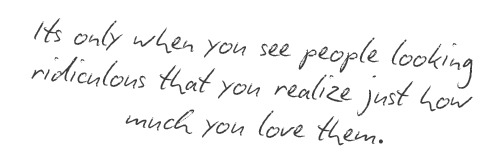 Its only when you see people looking
ridiculous that you realize just how
much you love them.